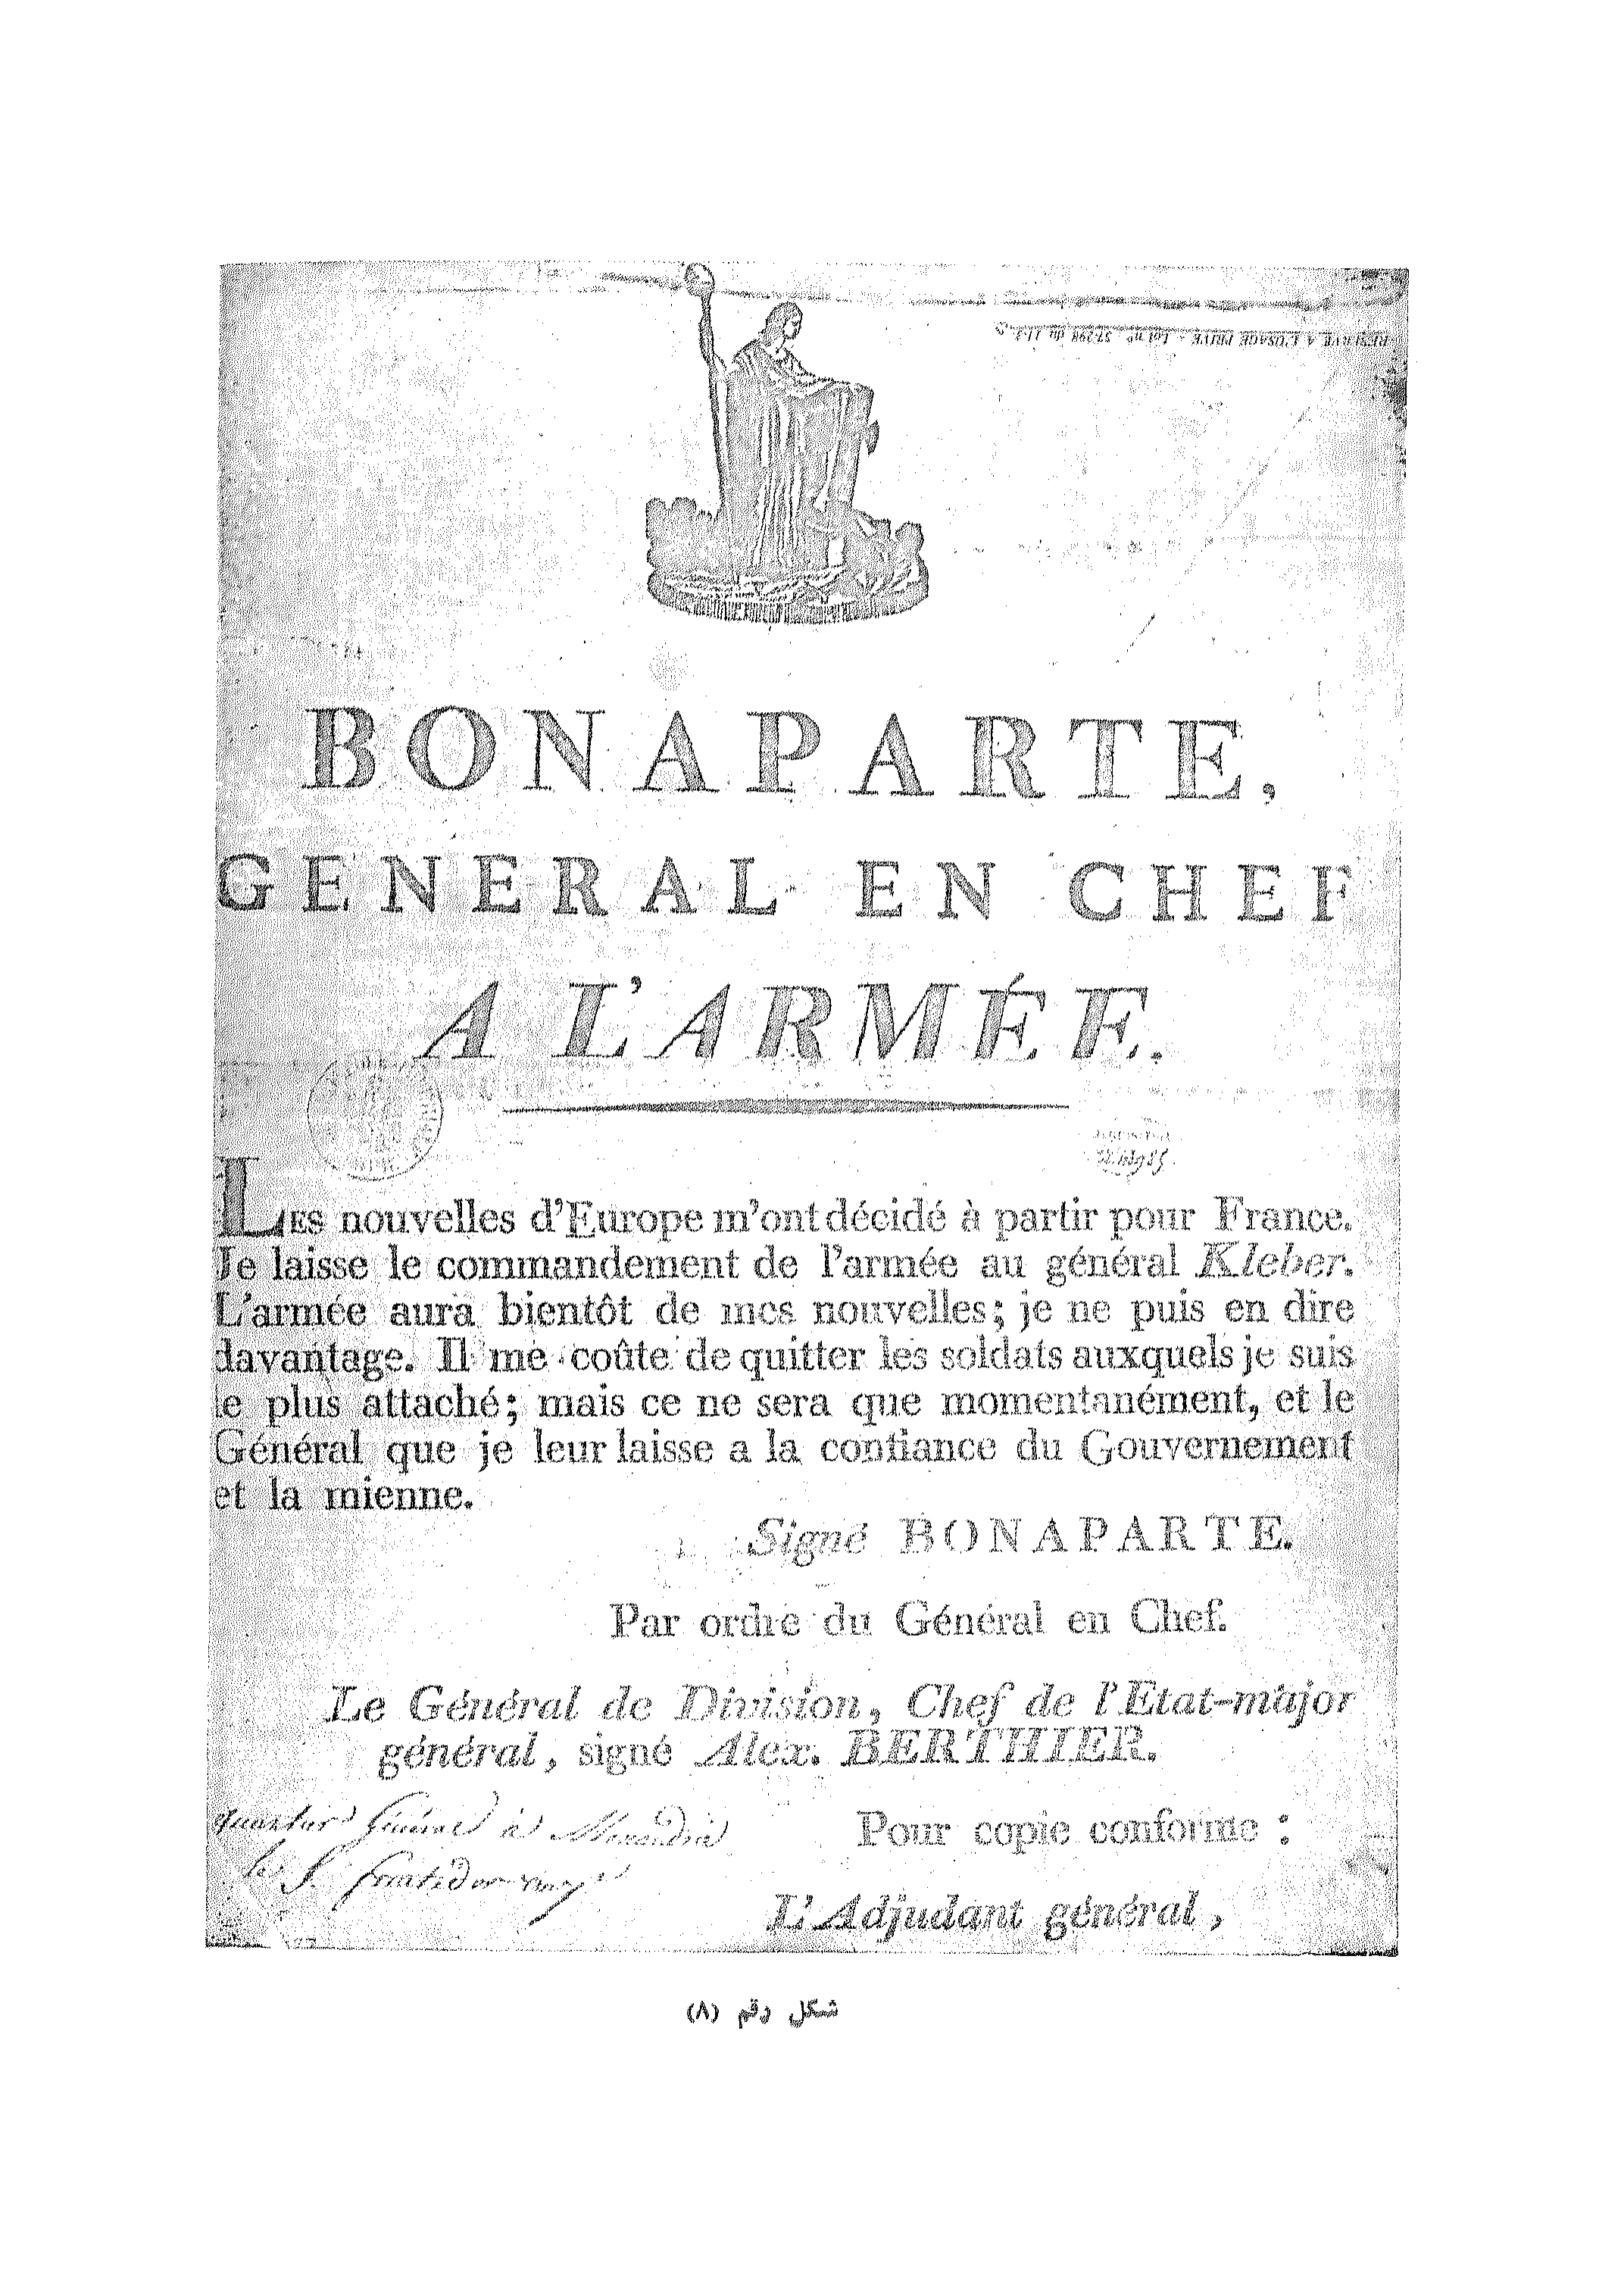 RESERVE A L'USAGE PRIVE - Loi n° 57.298 du 11-3-
BONAPARTE,
GENERAL EN CHEF
A L'ARMÉE.
LES nouvelles d'Europe m'ont décidé à partir pour France.
Je laisse le commandement de l'armée au général Kleber.
L'armée aura bientôt de mes nouvelles; je ne puis en dire
davantage. Il me coûte de quitter les soldats auxquels je suis
le plus attaché; mais ce ne sera que momentanément, et le
Général que je leur laisse a la confiance du Gouvernement
et la mienne.
Signé BONAPARTE.
Par ordre du Général en Chef.
Le Général de Division, Chef de l'Etat-major
général, signé Alex. BERTHIER.
quartier Général à Alexandrie
le
Pour copie conforme :
L'Adjudant général,
شكل رقم (٨)